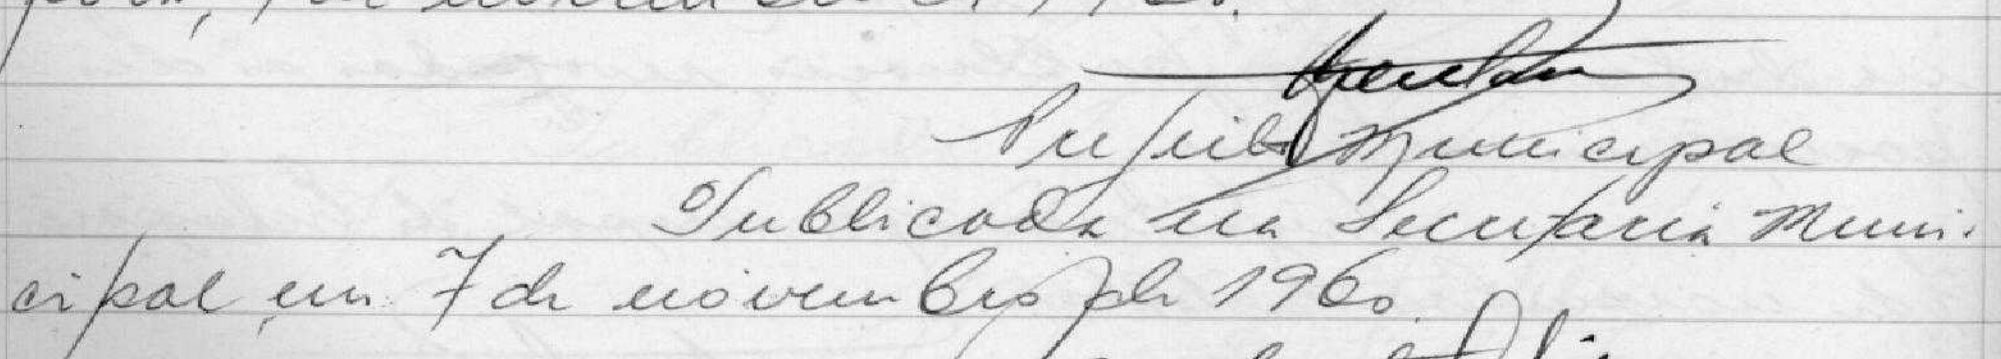 Prefeito Municipal
Publicada na Secretaria Muni-
cipal em 7 de novembro de 1960.